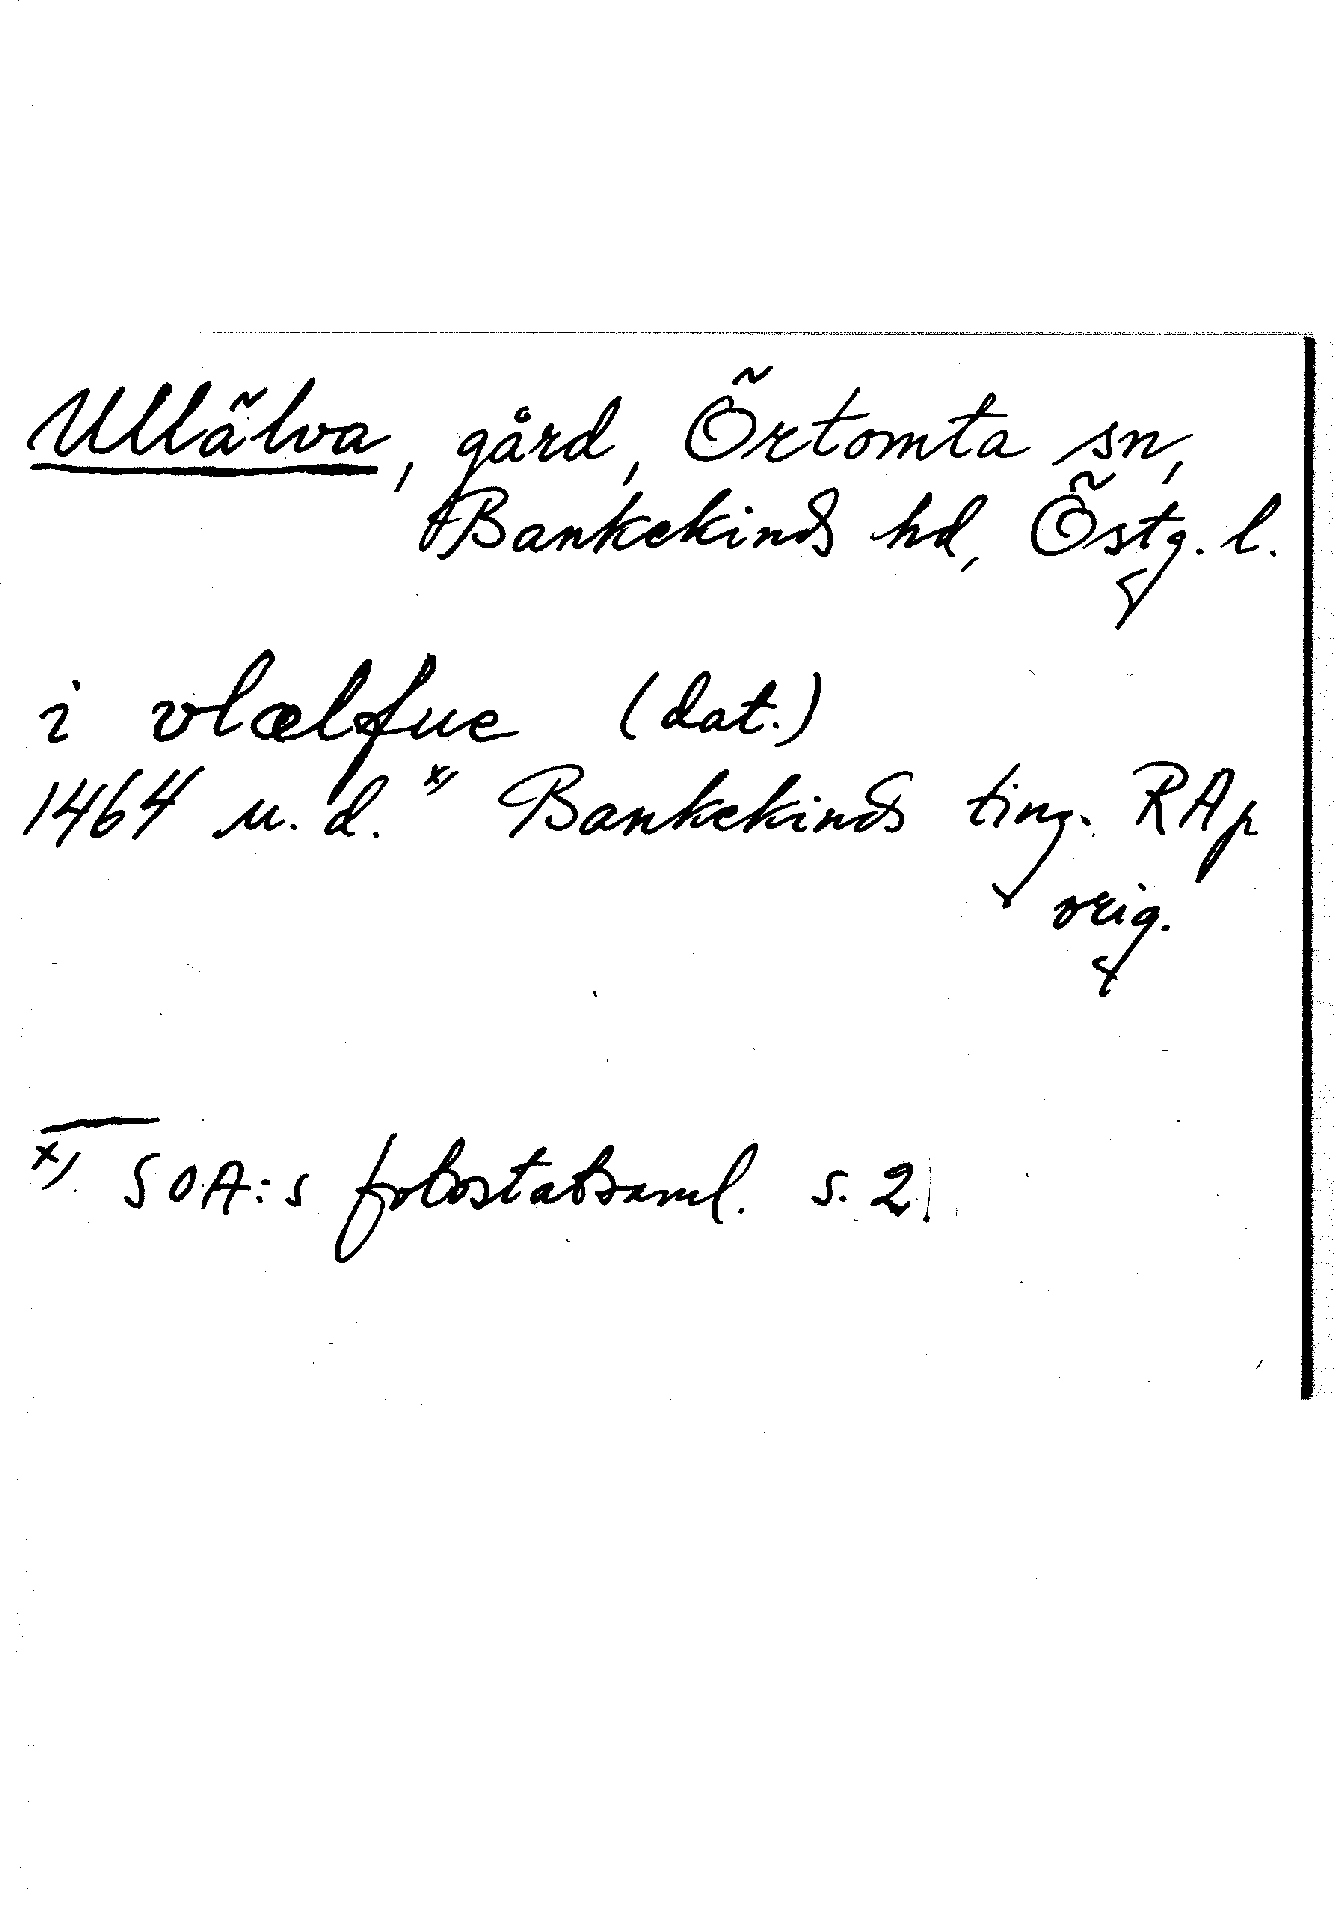 Ullälva, gård, Örtomta sn,
Bankekinds hd, Östg. l.
i vlælfue (dat.)
1464 u. d. x) Bankekinds ting. RAp
orig.
x) SOA:s fotostatsaml. s. 2